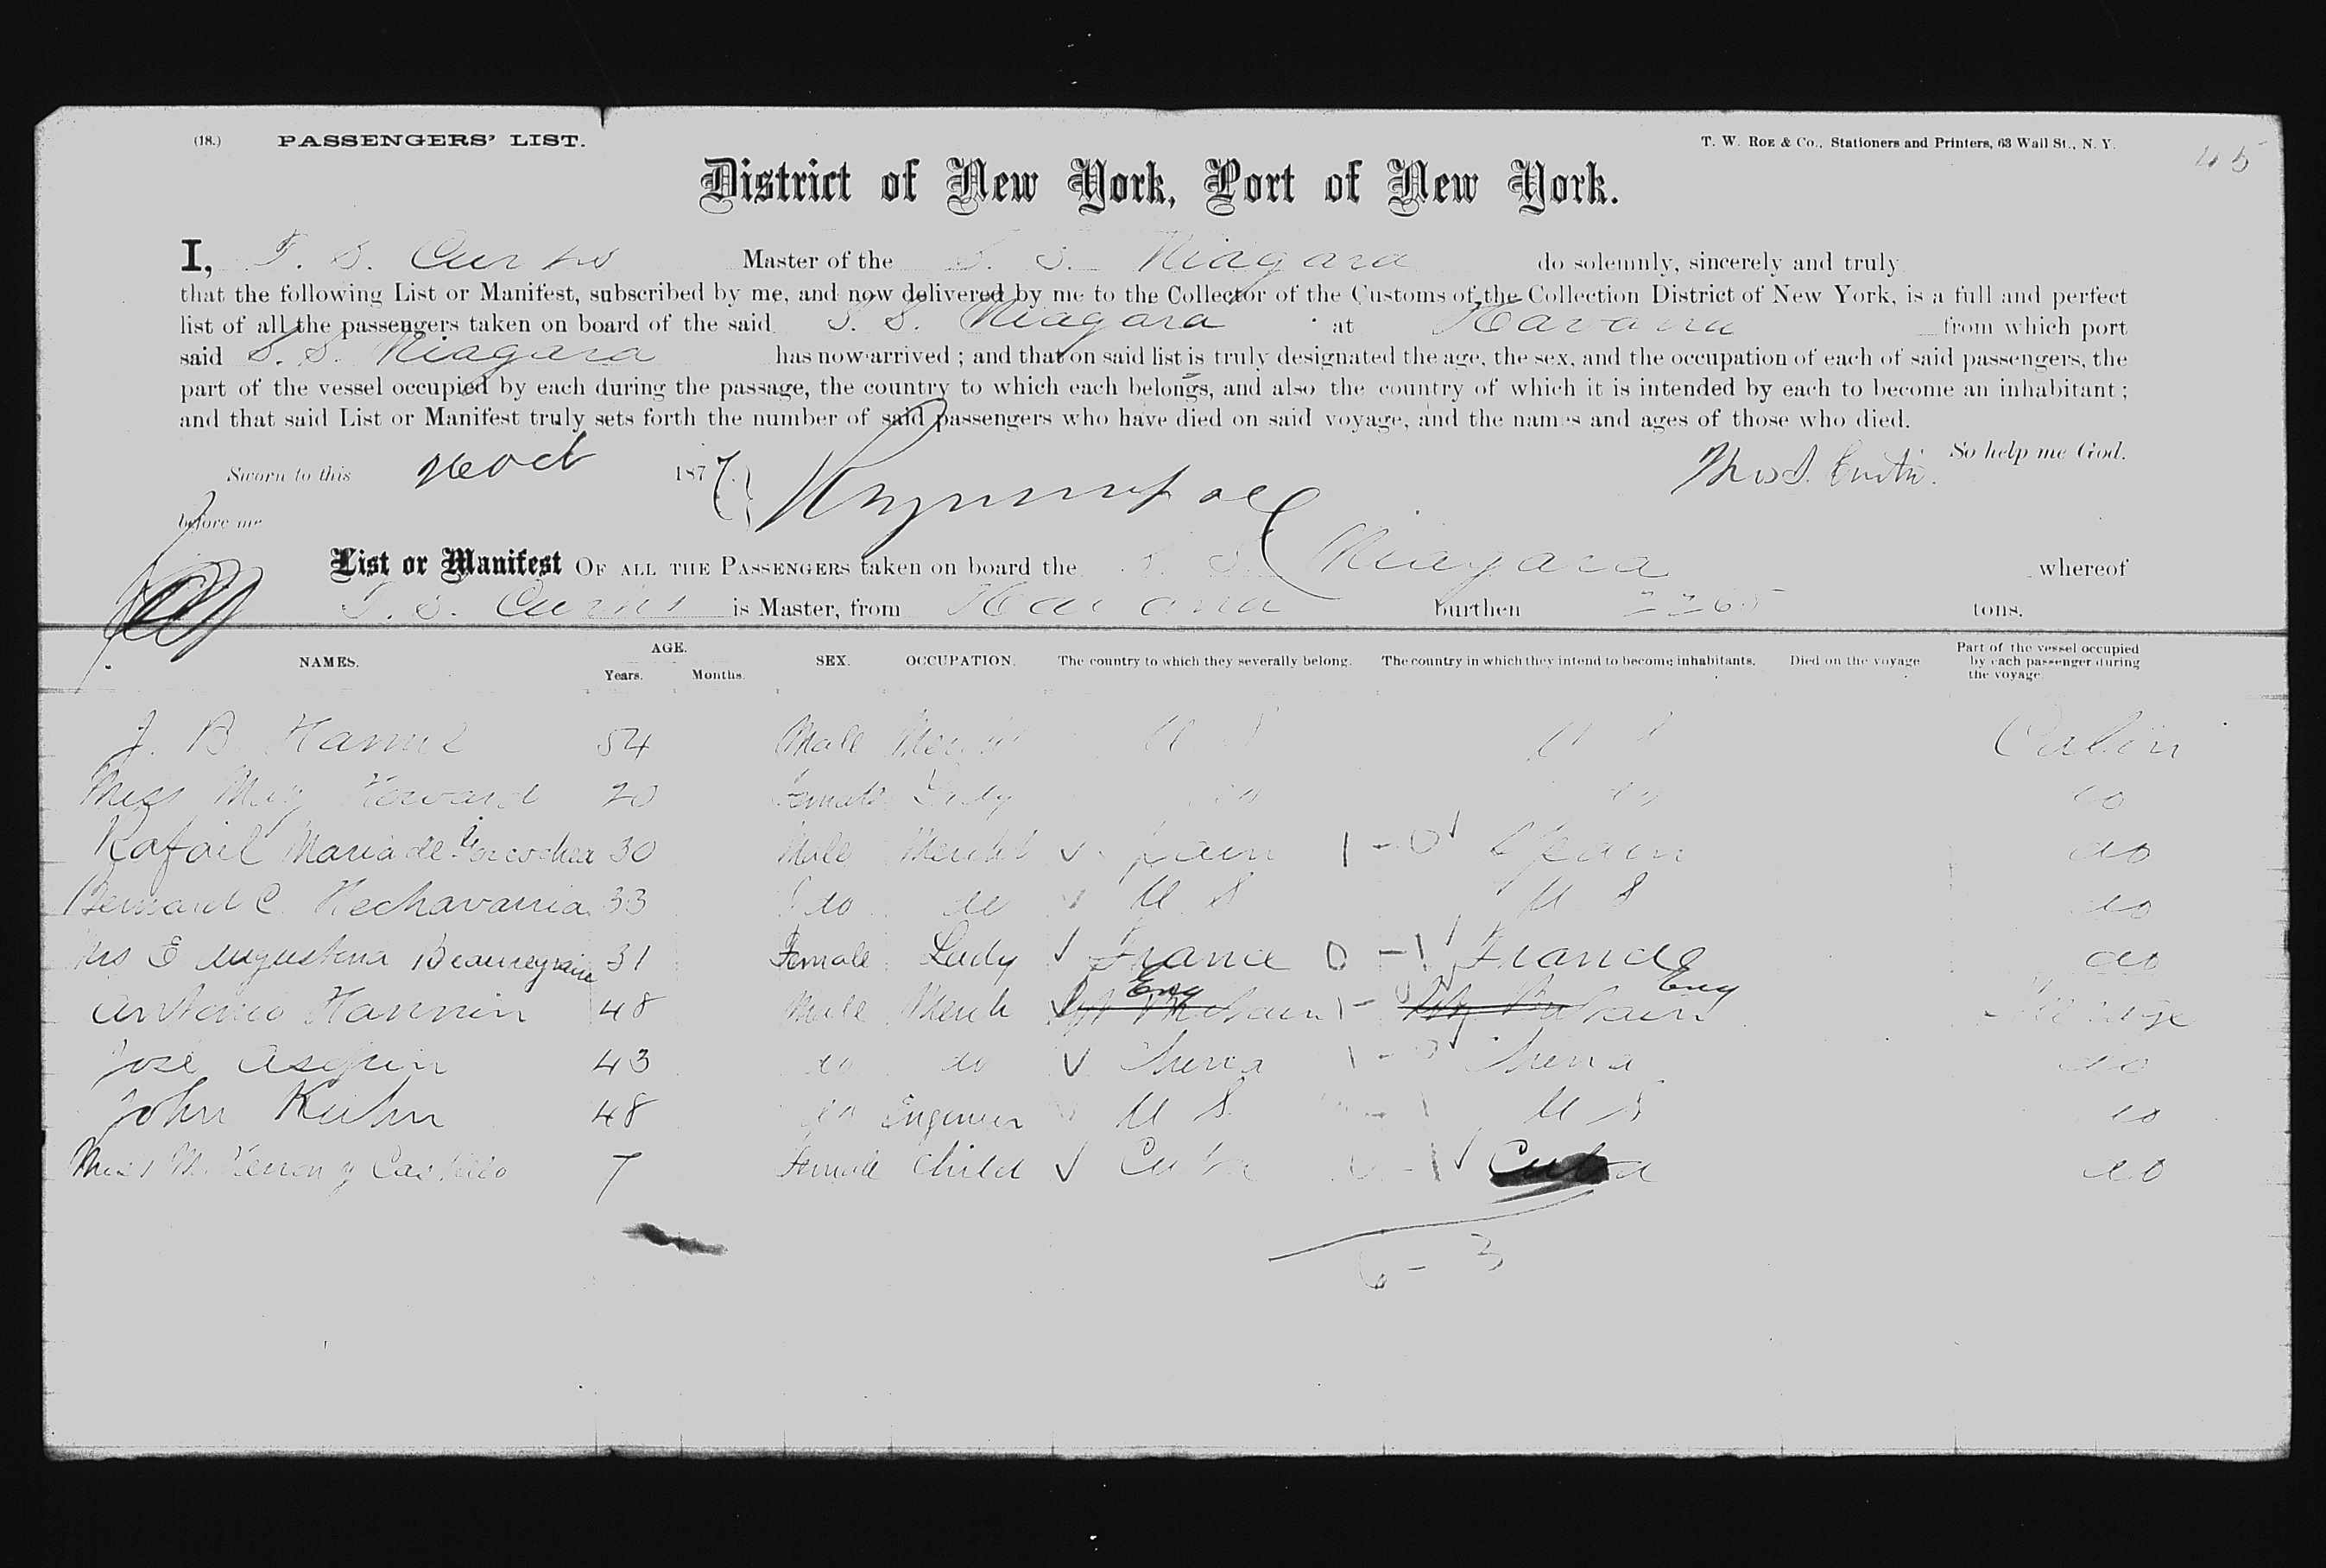 (18.) PASSENGERS' LIST. T. W. ROE & Co., Stationers and Printers, 63 Wall St., N. Y. 45
District of New York, Port of New York.
I, T. S. Curtis Master of the S. S. Niagara do solemnly, sincerely and truly
that the following List or Manifest, subscribed by me, and now delivered by me to the Collector of the Customs of the Collection District of New York, is a full and perfect
list of all the passengers taken on board of the said S. S. Niagara at Havana from which port
said S. S. Niagara has now arrived ; and that on said list is truly designated the age, the sex, and the occupation of each of said passengers, the
part of the vessel occupied by each during the passage, the country to which each belongs, and also the country of which it is intended by each to become an inhabitant ;
and that said List or Manifest truly sets forth the number of said passengers who have died on said voyage, and the names and ages of those who died.
So help me God.
Sworn to this 1877. Thos. S. Curtis.
before me
List or Manifest OF ALL THE PASSENGERS taken on board the S. S. Niagara whereof
T. S. Curtis is Master, from Havana burthen 2265 tons.
NAMES. AGE. Years. Months. SEX. OCCUPATION. The country to which they severally belong. The country in which they intend to become inhabitants. Died on the voyage Part of the vessel occupied by each passenger during the voyage
J. B. Hamel 54 Male Mercht U S U S Cabin
Miss May Howard 20 Female Lady do do do
Rafail Maria de 30 Male Mercht Spain 1 - 0 Spain do
Bernard C. Hechavarria 33 do do U S U S do
Mrs E Augustina Beauregaine 31 Female Lady France 0 - 1 France do
Antonio Hannin 48 Male Merch Eng 1 - 0 Eng Steerage
José Asquin 43 do do China 1 - 0 China do
John Kuhn 48 do Engineer U S U S do
Miss M. y Castillo 7 Female Child Cuba 0 - 1 Cuba do
6 - 3